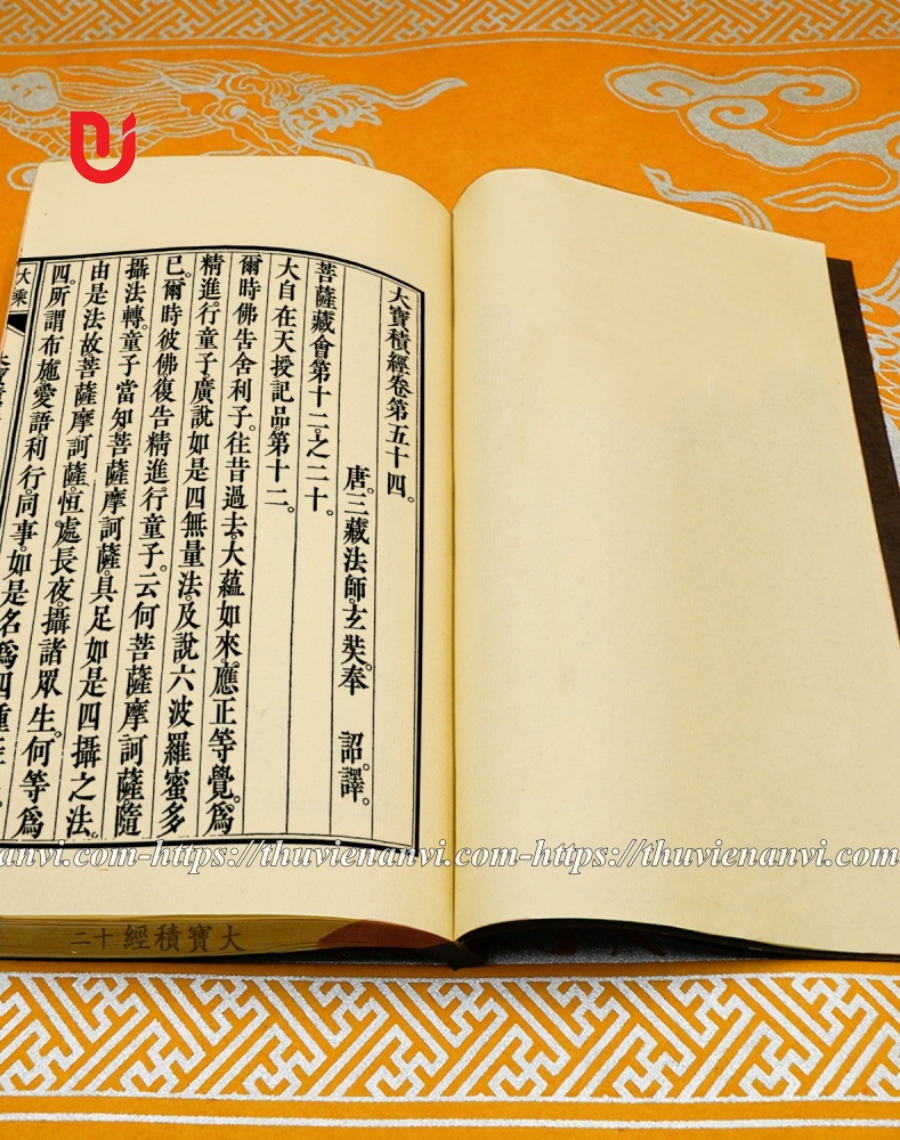 大寶積經卷第五十四。
唐。三藏法師。玄奘。奉 詔。譯。
菩薩藏會。第十二之二十。
大自在天授記品。第十二。
爾時佛告舍利子。往昔過去。大蘊如來。應正等覺。爲
精進。行童子。廣說如是四無量法。及說六波羅蜜多
已。爾時彼佛。復告精進。行童子。云何菩薩摩訶薩。隨
攝法轉。童子當知。菩薩摩訶薩。具足如是四攝之法。
由是法故。菩薩摩訶薩。恒處長夜。攝諸眾生。何等爲
四。所謂布施。愛語。利行。同事。如是名爲四種
大乘
anvi.com-https://thuvienanvi.com-https://thuvienanvi.com
大寶積經 十二